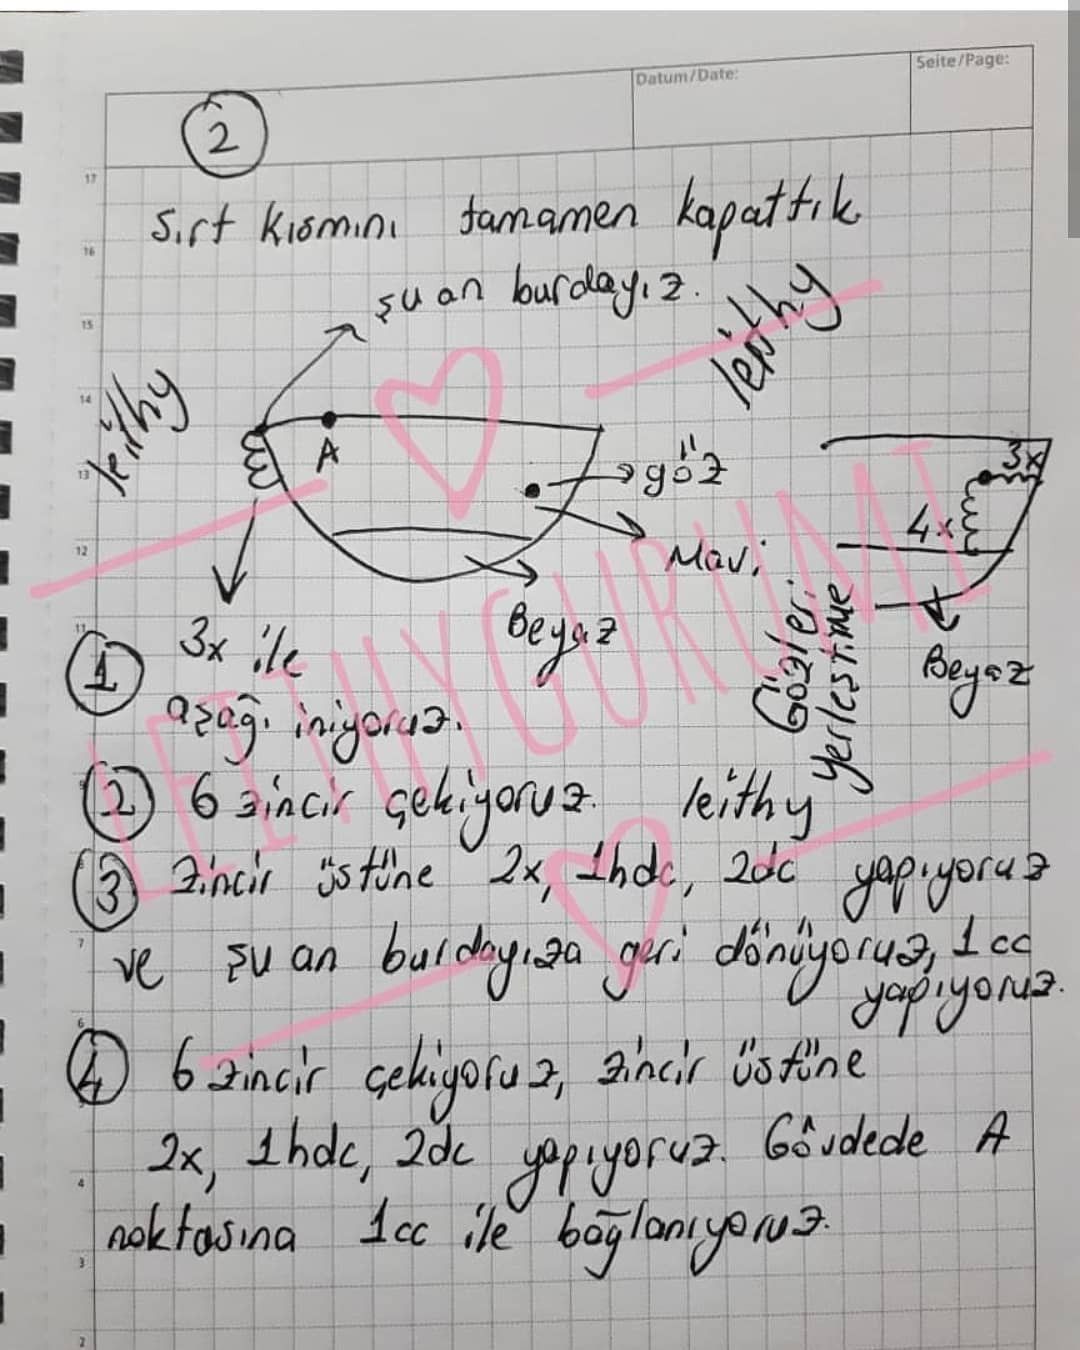 Datum/Date:
Seite/Page:
2
17
Sırt kısmını tamamen kapattık
16
şu an burdayız.
15
leithy
leithy
14
A
göz
3x
13
4x
12
Mavi
Beyaz
Beyaz
Gözleri
yerleştirme
11
1 3x ile
aşağı iniyoruz.
LEITHYGURUMI
2 6 zincir çekiyoruz. leithy
3 Zincir üstüne 2x, 1hdc, 2dc yapıyoruz
7
ve şu an burdayıza geri dönüyoruz, 1cc
yapıyoruz.
6
4 6 zincir çekiyoruz, zincir üstüne
2x, 1hdc, 2dc yapıyoruz. Gövdede A
4
noktasına 1cc ile bağlanıyoruz.
3
2